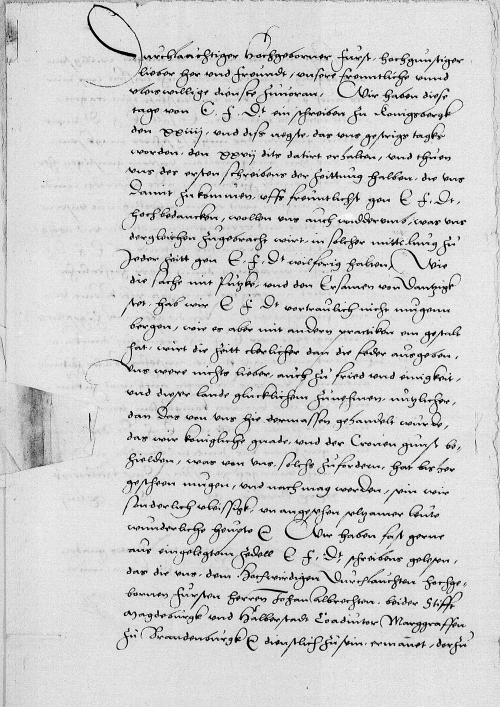 Durchlauchtiger Hochgeborner Furst, hochgunstiger
lieber her und Freundt, unsere freuntliche unnd
vleiswillige dienste zuuoran, Wir haben diese
tage von E. F. Dt. ein schreiben zu Konigsbergk
den xxiiij, und diss negste, das uns gestrigs tages
worden, den xxvij dits datirt erhalten, und thuen
uns des ersten schreibens der Zeittung halben, die uns
damit zukommen, uffs freuntlichst gen E F Dt,
hochbedancken, wollen uns auch widderumb, was uns
dergleichen zugebracht wirt, in solcher mittlung zu
jeder Zeitt gen E F Dt wilferig halten, Wie
die sache mit und den Ersamen von Dantzigk
stet, hab wir E F Dt vertraulich nicht mugenn
bergen, wie es aber mit andern practiken ein gestalt
hat, wirt die Zeitt clerlicher dan die feder ausgeben,
Uns were nichts lieber, auch zu fried und einigkeit,
und dieser lande glucklichem Zunehmen, nutzlicher,
dan das von uns hie dermassen gehandelt wurde,
das wir konigliche gnade, und der Cronen gunst be-
hielden, was von uns, solchs zufordern, hat bis her
gescheen mugen, und noch mag werden, sein wir
sonderlich vleissigk, unangesehen seltzamer leute
wunderliche heupte E Wir haben fast gerne
aus eingelegtem Zedell E F Dt schreibens gelesen,
das die uns, dem Hochwirdigen Durchlauchten hochge-
bornen Fursten herren Johan Albrechten, beider Stifft
Magdeburgk und Halberstadt Coadiutor Marggraffen
zu Brandenburgk E dienstlich zu sein, ermanet, der zu